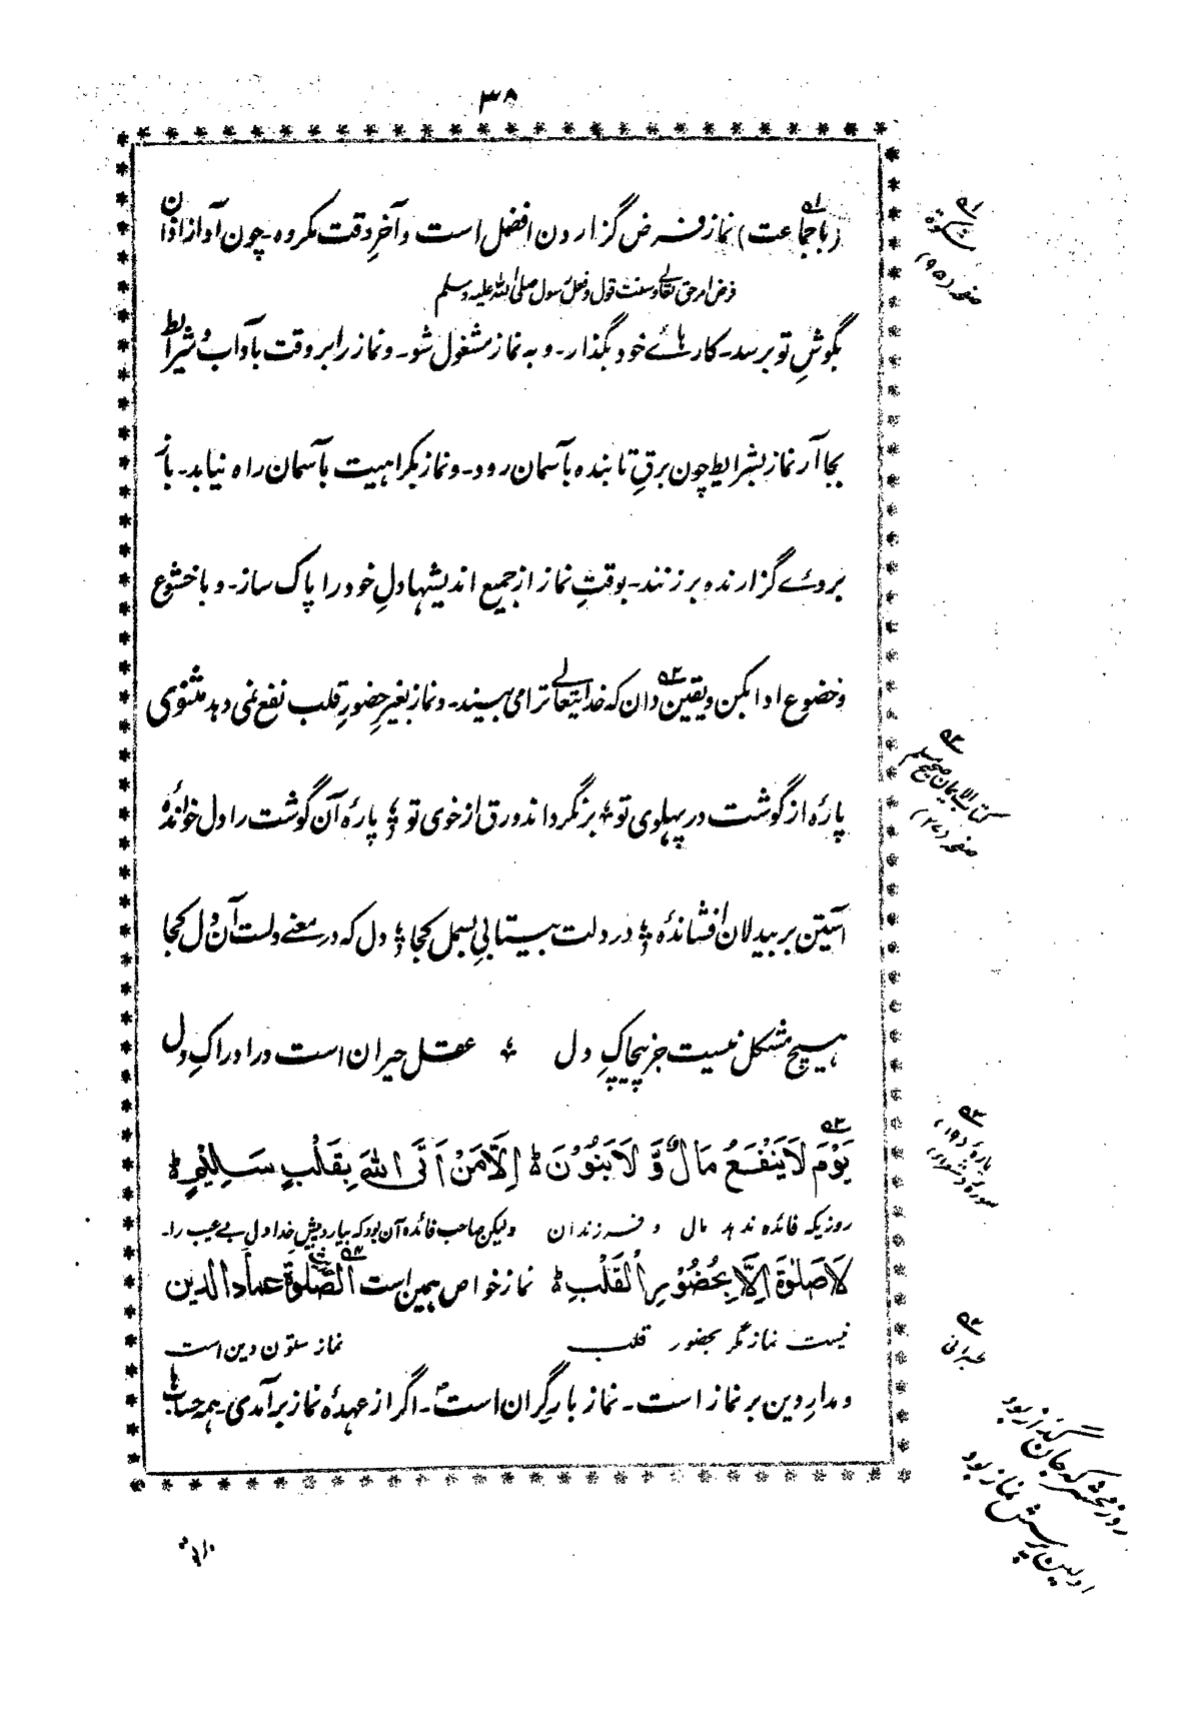 ۳۸
(باجماعت) نماز فرض گزاردن افضل است و آخرِ وقت مکروہ۔ چون آواز اذان
فرض امر حق تعالےٰ و سنت قول و فعل رسول صلی اللہ علیہ وسلم
بگوشِ تو برسد۔ کارہائے خود بگذار۔ و بہ نماز مشغول شو۔ و نماز را بر وقت با آداب و شرائط
بجا آر نماز بشرایط چون برقِ تابندہ بآسمان رود۔ و نماز بکراہیت بآسمان راہ نیابد۔ باز
بروئے گزارندہ برزنند۔ بوقتِ نماز از جمیع اندیشہا دلِ خود را پاک ساز۔ و با خشوع
و خضوع ادا بکن و یقین دان کہ خدایتعالےٰ ترا می بیند۔ و نماز بغیر حضورِ قلب نفع نمی دہد مثنوی
پارۂ از گوشت در پہلوی تو ؛ بر نگرداند ورق از خوی تو ؛ پارۂ آن گوشت را دل خواندۂ
آستین بر بیدلان افشاندۂ ؛ در دلت بیتابیِ بسمل کجا ؛ دل کہ در معنے دلست آن دل کجا
ہیچ مشکل نیست جز پیچاکِ دل ؛ عقل حیران است در ادراکِ دل
یَوْمَ لَا یَنْفَعُ مَالٌ وَّ لَا بَنُوْنَ ط اِلَّا مَنْ اَتَی اللہَ بِقَلْبٍ سَلِیْمٍ ط
روزیکہ فائدہ ندہد مال و فرزندان ولیکن صاحب فائدہ آن بود کہ بیارد پیش خدا دلِ بے عیب را۔
لَا صَلٰوۃَ اِلَّا بِحُضُوْرِ الْقَلْبِ ط نماز خواص ہمین است الصَّلٰوۃ عماد الدین
نیست نماز مگر بحضور قلب نماز ستون دین است
و مدارِ دین بر نماز است۔ نماز بارِ گران است۔ اگر از عہدۂ نماز برآمدی۔ ہمہ حسابہا
صفحہ (۹۵)
کتاب الایمان صحیح مسلم
صفحہ (۲۷)
پارۂ (۱۹)
روزِ محشر کہ جان گداز بود
اولین پرسش نماز بود